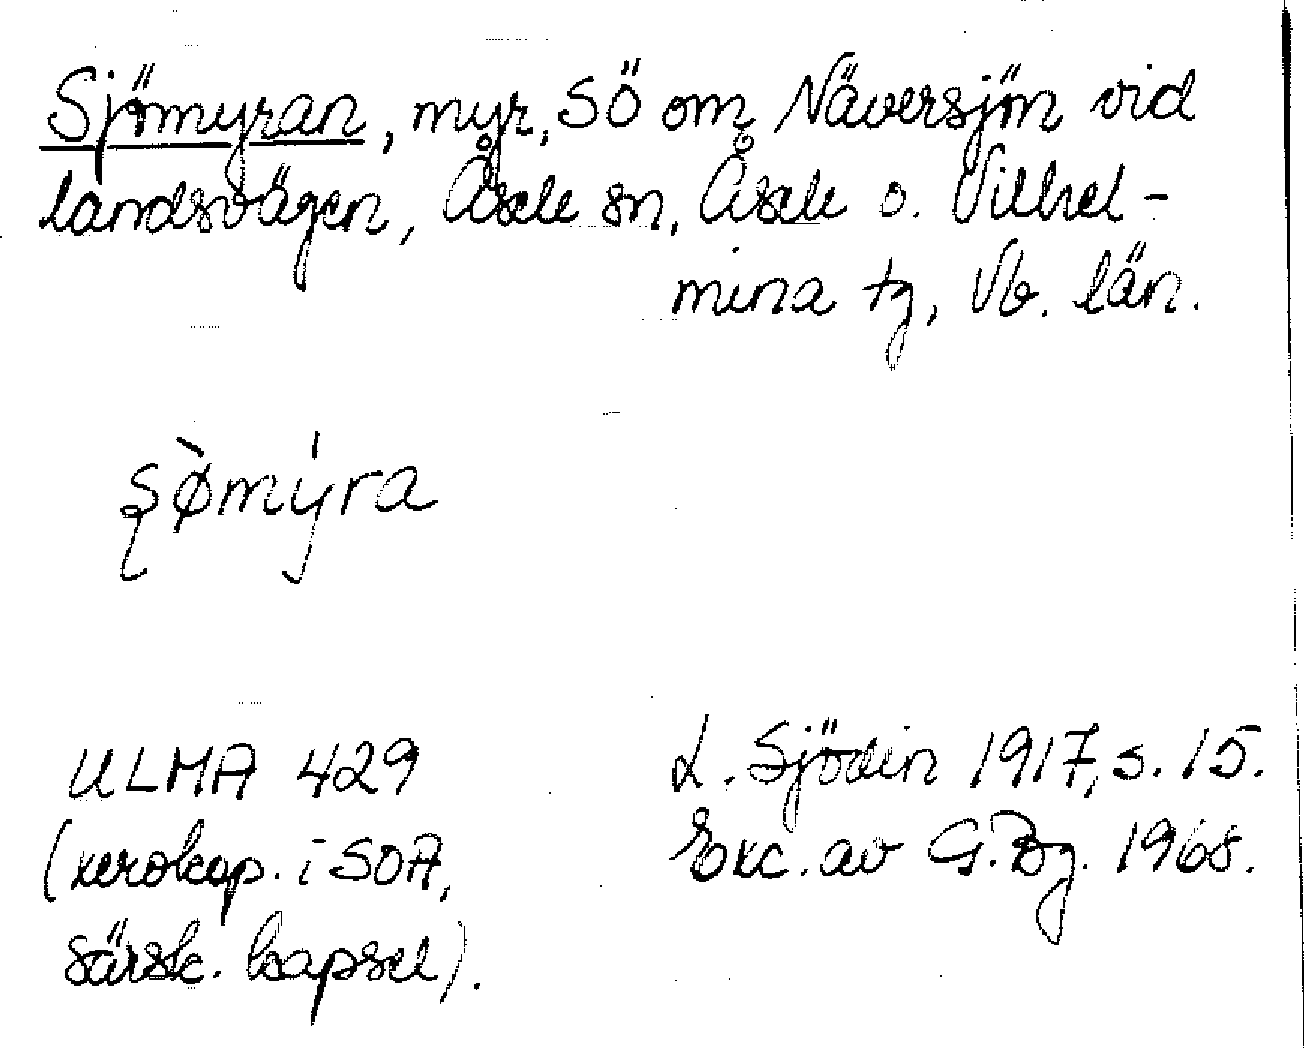 Sjömyran, myr, SÖ om Näversjön vid
landsvägen, Åsele sn, Åsele o. Vilhel-
mina tg, Vb. län.
şø̀mýra
ULMA 429
(xerokop. i SOA,
särsk. kapsel).
L. Sjödin 1917, s. 15.
Exc. av G. Bg. 1968.